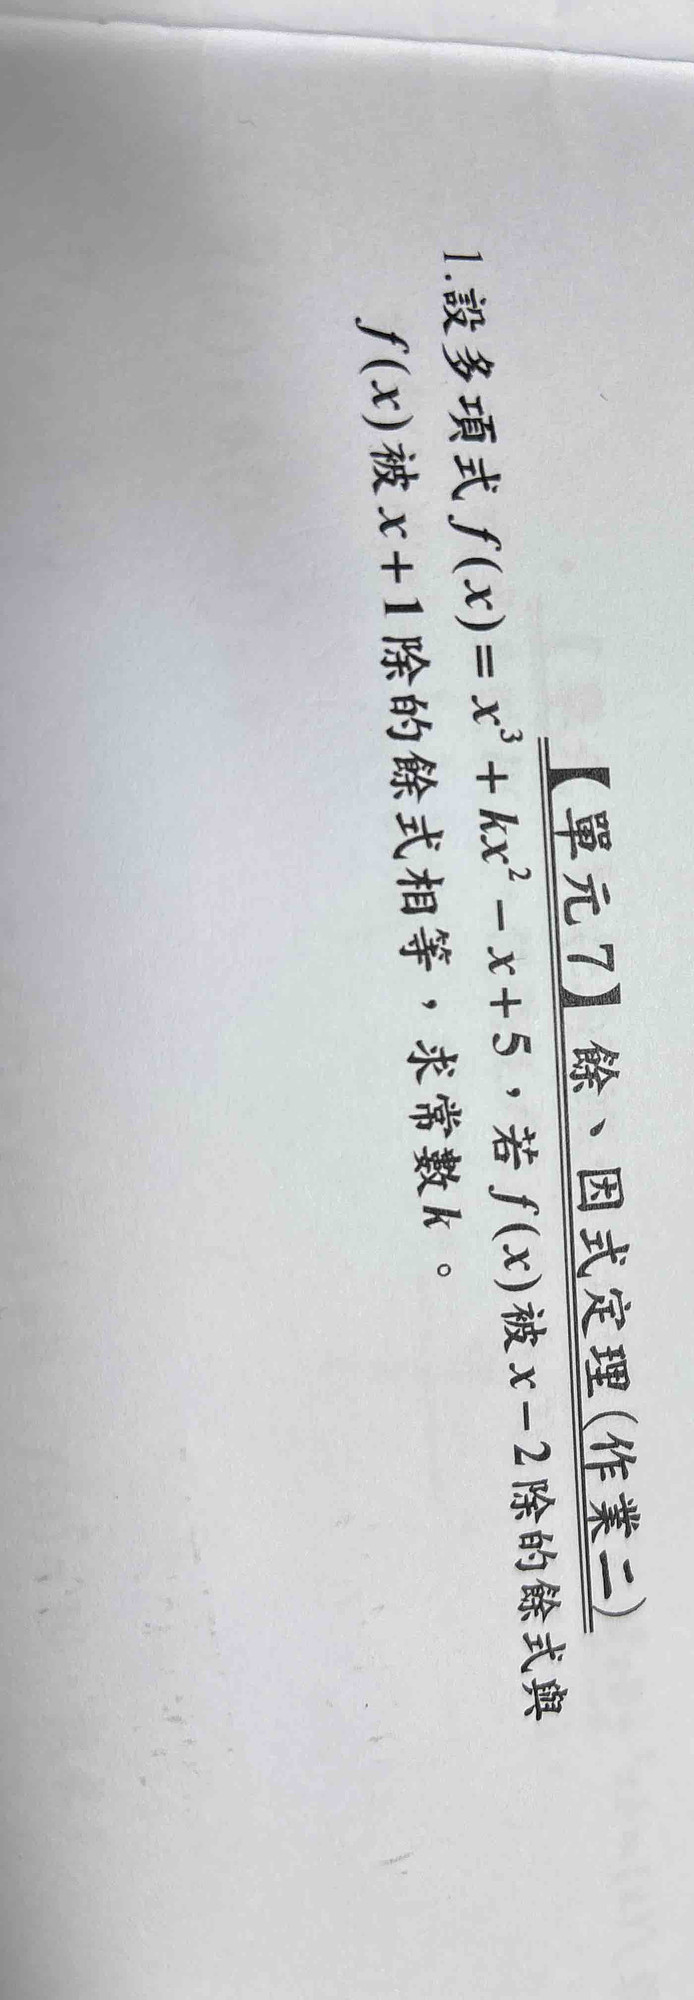 【單元7】餘、因式定理(作業二)
1.設多項式 f(x)=x³+kx²-x+5，若 f(x)被 x-2除的餘式與
f(x)被 x+1除的餘式相等，求常數k。